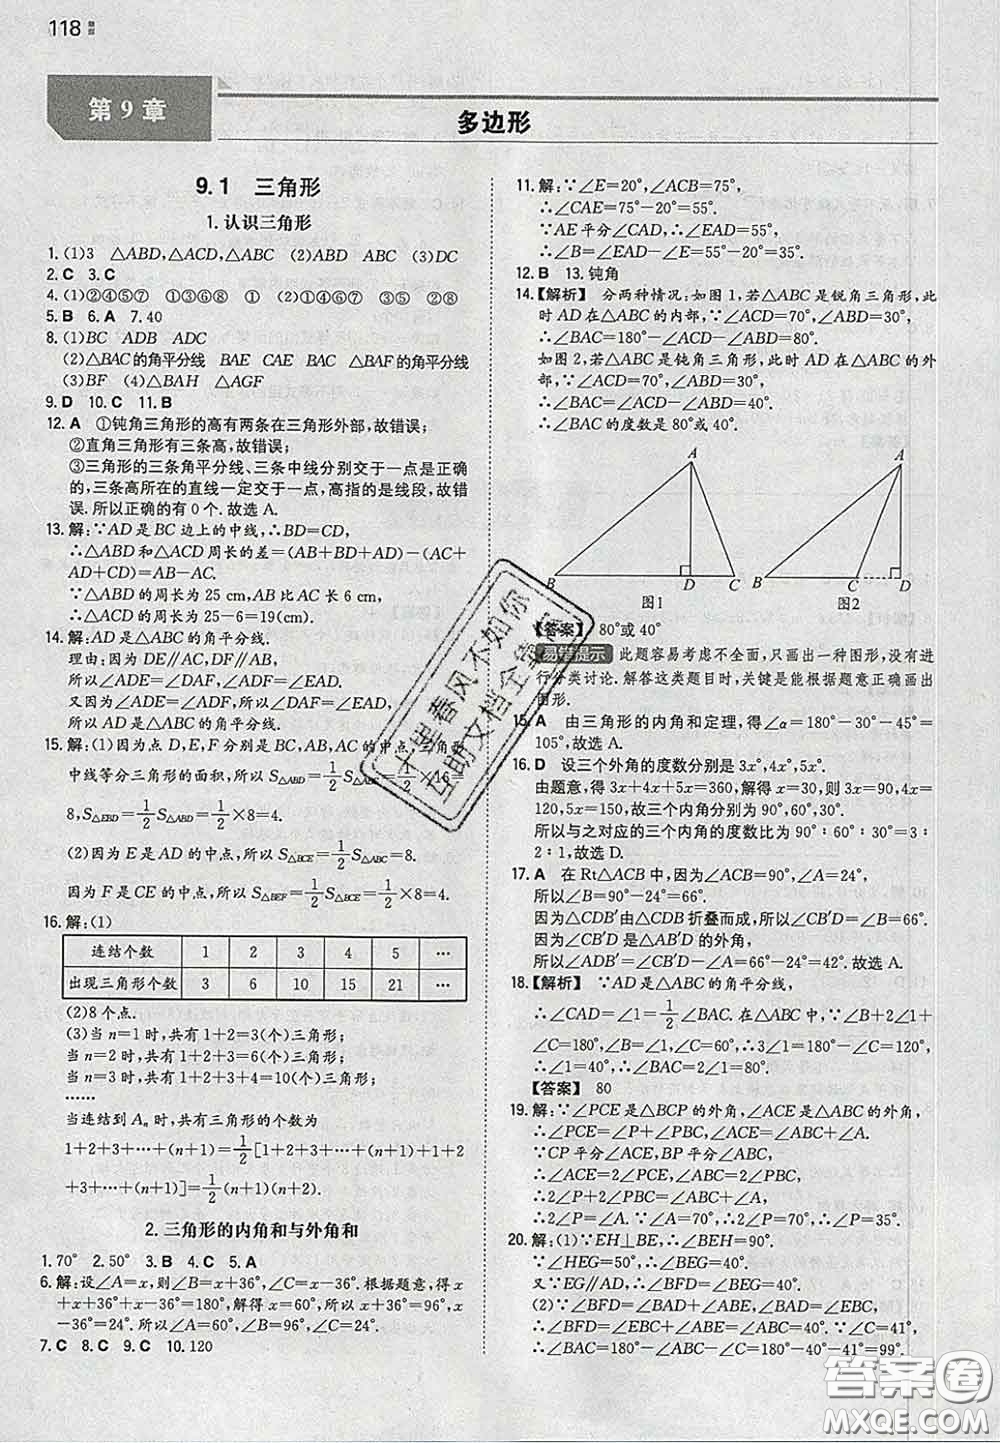 118
第9章
多边形
9.1 三角形
1.认识三角形
1.(1)3 △ABD,△ACD,△ABC (2)ABD ABC (3)DC
2.C 3.C
4.(1)②④⑤⑦ ①③⑥⑧ ① (2)①③④⑤⑥⑦ ②⑧
5.B 6.A 7.40
8.(1)BC ADB ADC
(2)△BAC的角平分线 BAE CAE BAC △BAF的角平分线
(3)BF (4)△BAH △AGF
9.D 10.C 11.B
12.A ①钝角三角形的高有两条在三角形外部,故错误;
②直角三角形有三条高,故错误;
③三角形的三条角平分线、三条中线分别交于一点是正确
的,三条高所在的直线一定交于一点,高指的是线段,故错
误.所以正确的有0个.故选A.
13.解:∵AD是BC边上的中线,∴BD=CD,
∴△ABD和△ACD周长的差=(AB+BD+AD)-(AC+
AD+CD)=AB-AC.
∵△ABD的周长为25 cm,AB比AC长6 cm,
∴△ACD的周长为25-6=19(cm).
14.解:AD是△ABC的角平分线.
理由:因为DE∥AC,DF∥AB,
所以∠ADE=∠DAF,∠ADF=∠EAD.
又因为∠ADE=∠ADF,所以∠DAF=∠EAD,
所以AD是△ABC的角平分线.
15.解:(1)因为点D,E,F分别是BC,AB,AC的中点,三角形
中线等分三角形的面积,所以S△ABD=1/2S△ABC=1/2×16=
8,S△EBD=1/2S△ABD=1/2×8=4.
(2)因为E是AD的中点,所以S△BCE=1/2S△ABC=8.
因为F是CE的中点,所以S△BEF=1/2S△BCE=1/2×8=4.
16.解:(1)
连结个数 1 2 3 4 5 …
出现三角形个数 3 6 10 15 21 …
(2)8个点.
(3)当n=1时,共有1+2=3(个)三角形;
当n=2时,共有1+2+3=6(个)三角形;
当n=3时,共有1+2+3+4=10(个)三角形;
……
当连结到Aₙ时,共有三角形的个数为
1+2+3+…+(n+1)=1/2[1+2+3+…+(n+1)+1+2
+3+…+(n+1)]=1/2(n+1)(n+2).
2.三角形的内角和与外角和
1.70° 2.50° 3.B 4.C 5.A
6.解:设∠A=x,则∠B=x+36°,∠C=x-36°.根据题意,得x
+x+36°+x-36°=180°,解得x=60°,所以x+36°=96°,x
-36°=24°.所以∠A=60°,∠B=96°,∠C=24°.
7.C 8.C 9.C 10.120
11.解:∵∠E=20°,∠ACB=75°,
∴∠CAE=75°-20°=55°.
∵AE平分∠CAD,∴∠EAD=55°,
∴∠B=∠EAD-∠E=55°-20°=35°.
12.B 13.钝角
14.【解析】 分两种情况:如图1,若△ABC是锐角三角形,此
时AD在△ABC的内部,∵∠ACD=70°,∠ABD=30°,
∴∠BAC=180°-∠ACD-∠ABD=80°.
如图2,若△ABC是钝角三角形,此时AD在△ABC的外
部,∵∠ACD=70°,∠ABD=30°,
∴∠BAC=∠ACD-∠ABD=40°.
∴∠BAC的度数是80°或40°.
A
B
D
C
图1
A
B
C
D
图2
【答案】 80°或40°
易错提示 此题容易考虑不全面,只画出一种图形,没有进
行分类讨论.解答这类题目时,关键是能根据题意正确画出
图形.
15.A 由三角形的内角和定理,得∠α=180°-30°-45°=
105°,故选A.
16.D 设三个外角的度数分别是3x°,4x°,5x°.
由题意,得3x+4x+5x=360,解得x=30,则3x=90,4x=
120,5x=150,故三个内角分别为90°,60°,30°.
所以与之对应的三个内角的度数比为90°∶60°∶30°=3∶
2∶1,故选D.
17.A 在Rt△ACB中,因为∠ACB=90°,∠A=24°,
所以∠B=90°-24°=66°.
因为△CDB′由△CDB折叠而成,所以∠CB′D=∠B=66°.
因为∠CB′D是△AB′D的外角,
所以∠ADB′=∠CB′D-∠A=66°-24°=42°.故选A.
18.【解析】 ∵AD是△ABC的角平分线,
∴∠CAD=∠1=1/2∠BAC.在△ABC中,∵∠B+2∠1+
∠C=180°,∠B=∠1,∴3∠1=180°-∠C=120°,
∴∠1=40°,∴∠BAC=2∠1=80°.
【答案】 80
19.解:∵∠PCE是△BCP的外角,∠ACE是△ABC的外角,
∴∠PCE=∠P+∠PBC,∠ACE=∠ABC+∠A.
∵CP平分∠ACE,BP平分∠ABC,
∴∠ACE=2∠PCE,∠ABC=2∠PBC,
∴2∠P+2∠PBC=∠ABC+∠A,
∴2∠P=∠A.∵∠A=70°,∴2∠P=70°,∴∠P=35°.
20.解:(1)∵EH⊥BE,∴∠BEH=90°.
∵∠HEG=50°,∴∠BEG=40°.
又∵EG∥AD,∴∠BFD=∠BEG=40°.
(2)∵∠BFD=∠BAD+∠ABE,∠BAD=∠EBC,
∴∠BFD=∠EBC+∠ABE=∠ABC=40°.
∵∠C=41°,∴∠BAC=180°-∠ABC-∠C=180°-40°-41°=99°.
十里春风不如你
互助文档全靠搞
答案圈
MXQE.COM